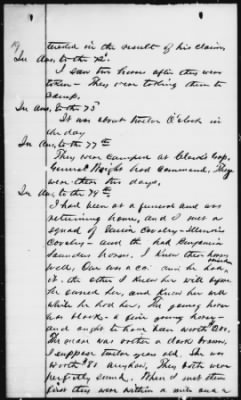 terested in the result of his claim
In Ans. to the 72d.
I saw the horses after they were
taken - They were taking them to
camp.
In Ans. to the 75th
It was about twelve O'Clock in
the day
In Ans. to the 77th
They were camped at Clark's Gap,
General Wright had command. They
were there two days,
In Ans. to the 78th
I had been at a funeral and was
returning home, and I met a
squad of Union Cavalry - Illinois
Cavalry - and they had Benjamin
Saunders horses. I knew these horses
well, One was a co. and he had
it. the other I knew her well before
he owned her, and knew her well
while he had her. The young horse
was black - a fine young horse -
and ought to have been worth
The mare was rather a dark brown,
I suppose twelve years old. She was
worth $80 anyhow, They both were
perfectly sound. When I met them
first they were within a mile and a